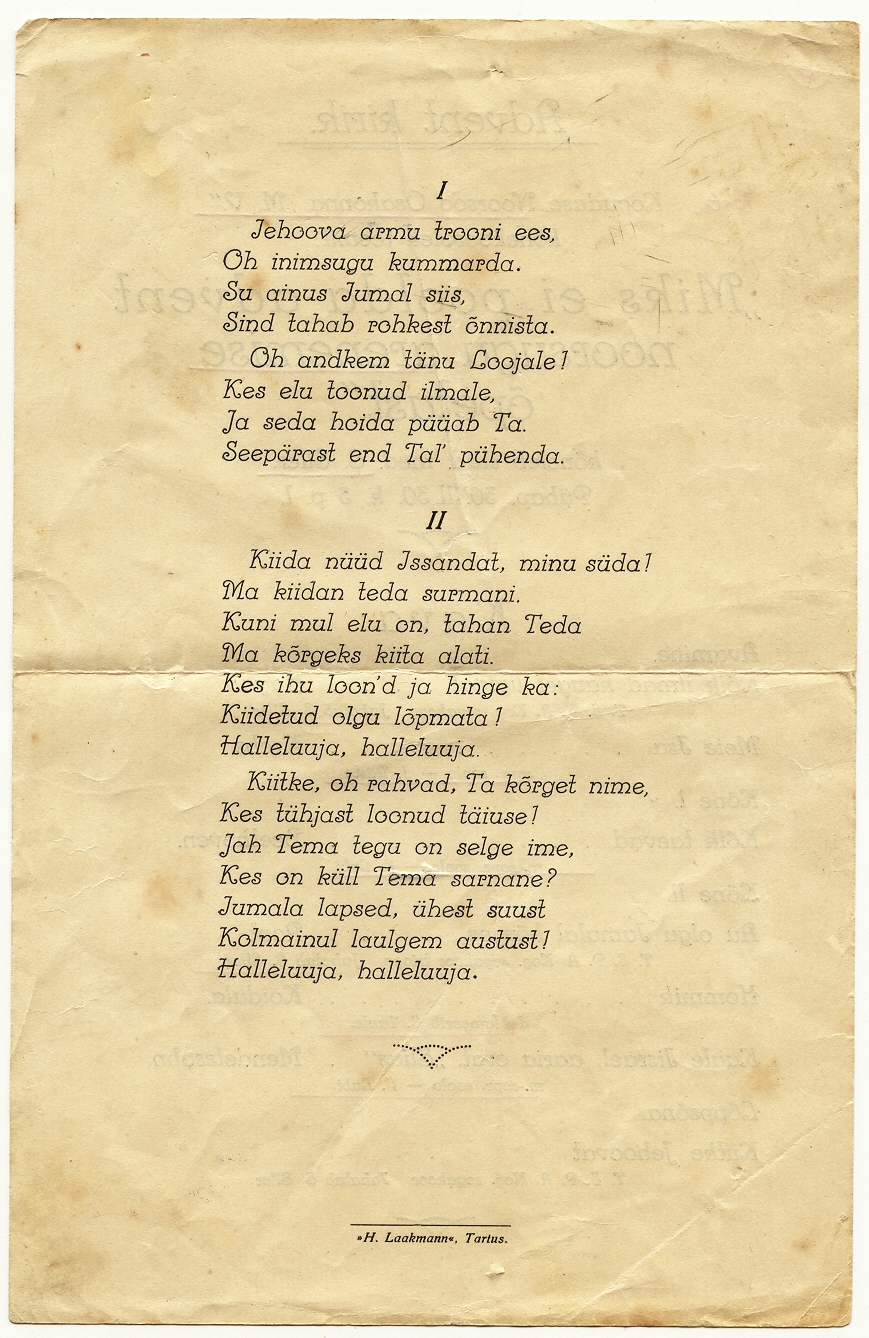 I
Jehoova armu trooni ees,
Oh inimsugu kummarda.
Su ainus Jumal siis,
Sind tahab rohkest õnnista.
Oh andkem tänu Loojale!
Kes elu toonud ilmale,
Ja seda hoida püüab Ta.
Seepärast end Tal’ pühenda.
II
Kiida nüüd Issandat, minu süda!
Ma kiidan teda surmani.
Kuni mul elu on, tahan Teda
Ma kõrgeks kiita alati.
Kes ihu loon’d ja hinge ka:
Kiidetud olgu lõpmata!
Halleluuja, halleluuja.
Kiitke, oh rahvad, Ta kõrget nime,
Kes tühjast loonud täiuse!
Jah Tema tegu on selge ime,
Kes on küll Tema sarnane?
Jumala lapsed, ühest suust
Kolmainul laulgem austust!
Halleluuja, halleluuja.
»H. Laakmann«, Tartus.